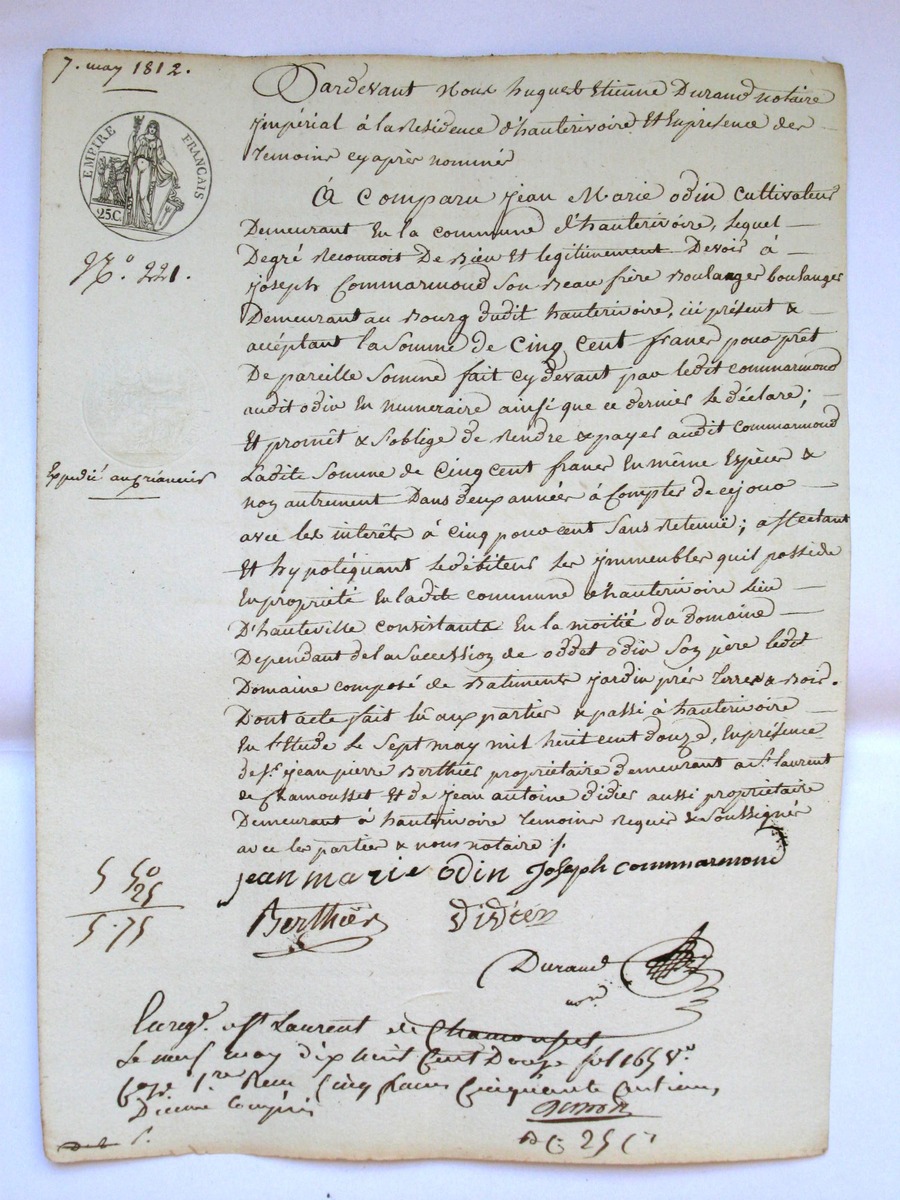 7. may 1812.
EMPIRE FRANÇAIS
25C.
No. 221.
Expedié au créancier
Pardevant Nous hugues Etienne Durand notaire
jmpérial à la Residence d'hauterivoire Et En presence des
temoins cy après nommés
A Comparu jean Marie odin cultivateur
Demeurant En la commune d'hauterivoire, Lequel
Degré Reconnoit De Bien Et legitimement Devoir à
joseph Commarmond Son Beau frère Boulanger boulanger
Demeurant au Bourg dudit hauterivoire, ici présent &
accéptant la Somme de Cinq Cent francs pour prêt
De pareille Somme fait cy devant par ledit commarmond
audit odin En numeraire ainsi que ce dernier le déclare;
Et promêt & S'oblige de Rendre & payer audit Commarmond
Ladite Somme de Cinq cent francs En même Espèces &
non autrement Dans deux années à Compter de ce jour
avec les interêts à cinq pour cent Sans Retenuë; affectant
Et hypotéquant le débiteur Les jmmeubles quil possède
En propriété En ladite commune d'hauterivoire Lieu
D'hauteville consistants En la moitié du Domaine
Dependant de la Succession de oddet odin Son père ledit
Domaine composé de Batiments jardin prés terres & Bois.
Dont acte fait lû aux parties & passé à hauterivoire
En l'Etude Le Sept may mil huit cent douze, En présence
de Sr. jean pierre Berthier propriétaire demeurant a St. Laurent
de Chamousset Et de jean antoine didier aussi propriétaire
Demeurant à hauterivoire temoins Requis & Soussignés
avec les parties & nous notaire /.
jean marie odin Joseph commarmond
5 50
25
5.75
Berthier Didier
Durand
nore
Enregé. à St Laurent de Chamousset
Le neuf may dix huit Cent Douze fol 165 Vo
Reçu Cinq francs Cinquante Centimes
Dixieme Compris
25 C